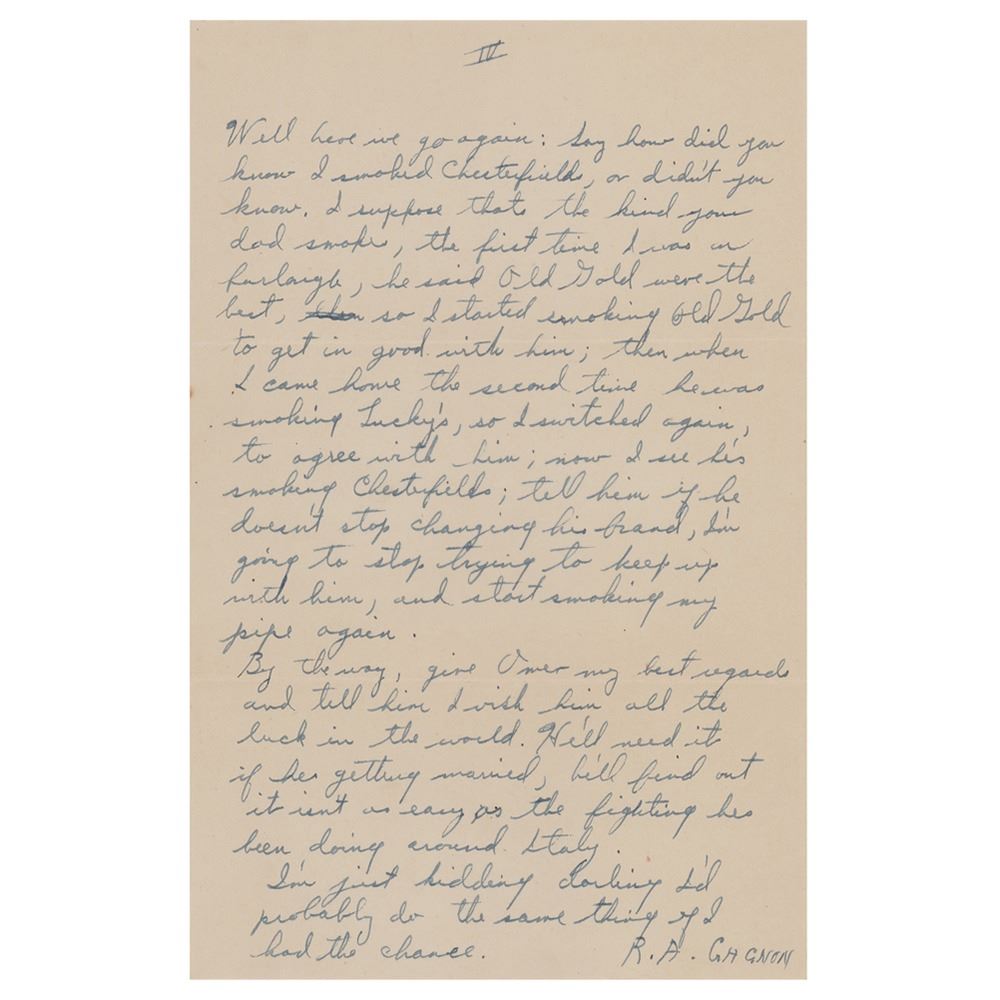 IV
Well here we go again: Say how did you
know I smoked Chesterfields, or didn't you
know. I suppose thats the kind your
dad smokes, the first time I was on
furlough, he said Old Gold were the
best, so I started smoking Old Gold
to get in good with him; then when
I came home the second time he was
smoking Lucky's, so I switched again,
to agree with him; now I see he's
smoking Chesterfields; tell him if he
doesn't stop changing his brand, I'm
going to stop trying to keep up
with him, and start smoking my
pipe again.
By the way, give Omer my best regards
and tell him I wish him all the
luck in the world. He'll need it
if hes getting married, he'll find out
it isn't as easy as the fighting hes
been doing around Italy.
I'm just kidding darling I'd
probably do the same thing if I
had the chance. R.A. GAGNON